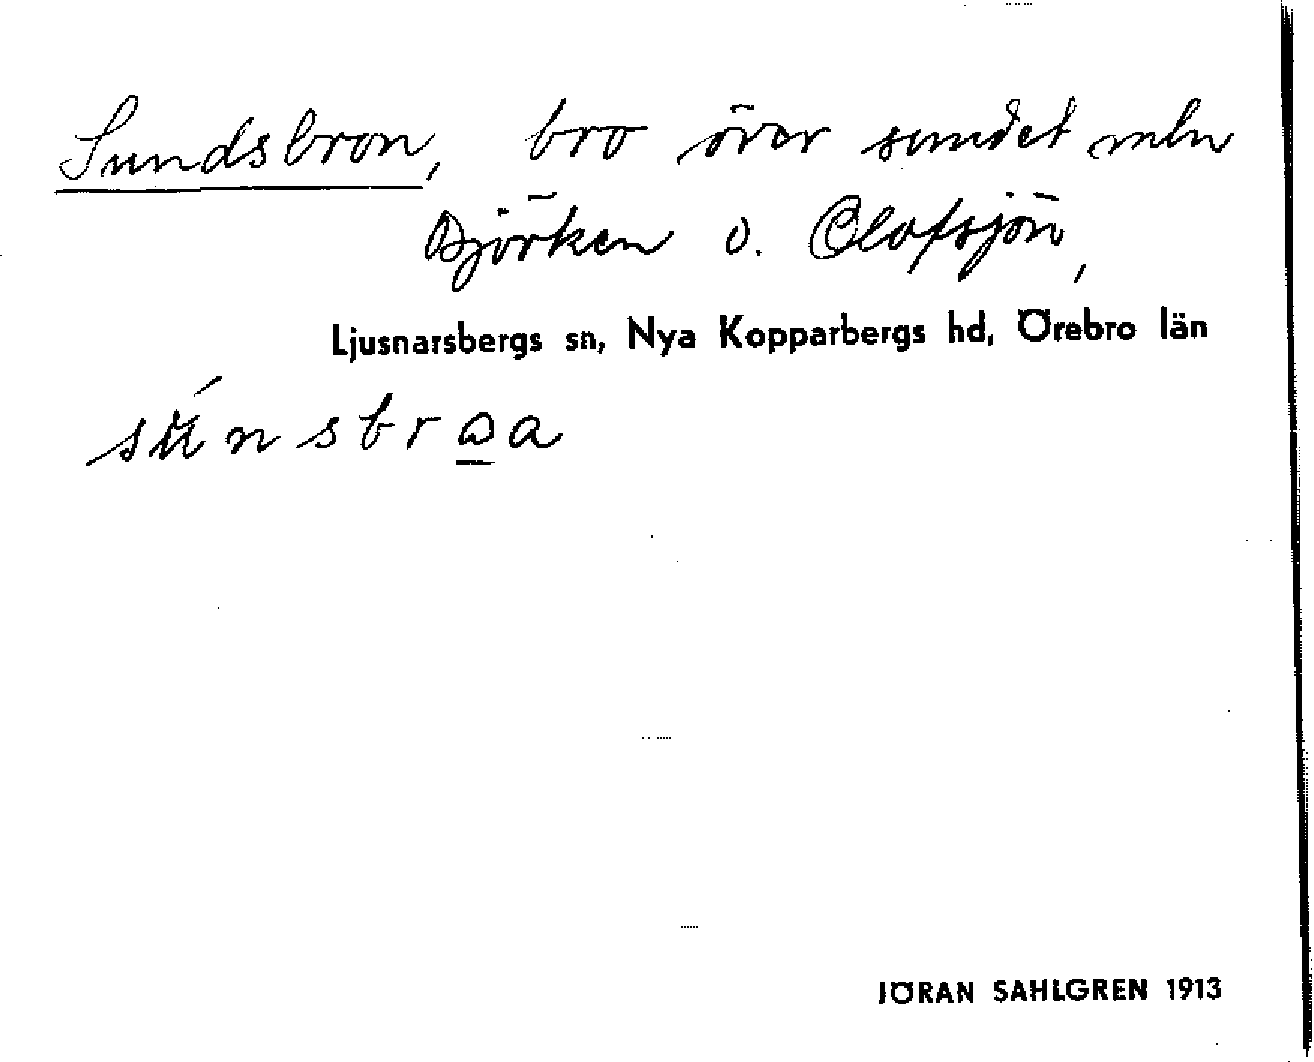 Sundsbron, bro över sundet mln
Björken o. Olofsjön,
Ljusnarsbergs sn, Nya Kopparbergs hd, Örebro län
JÖRAN SAHLGREN 1913